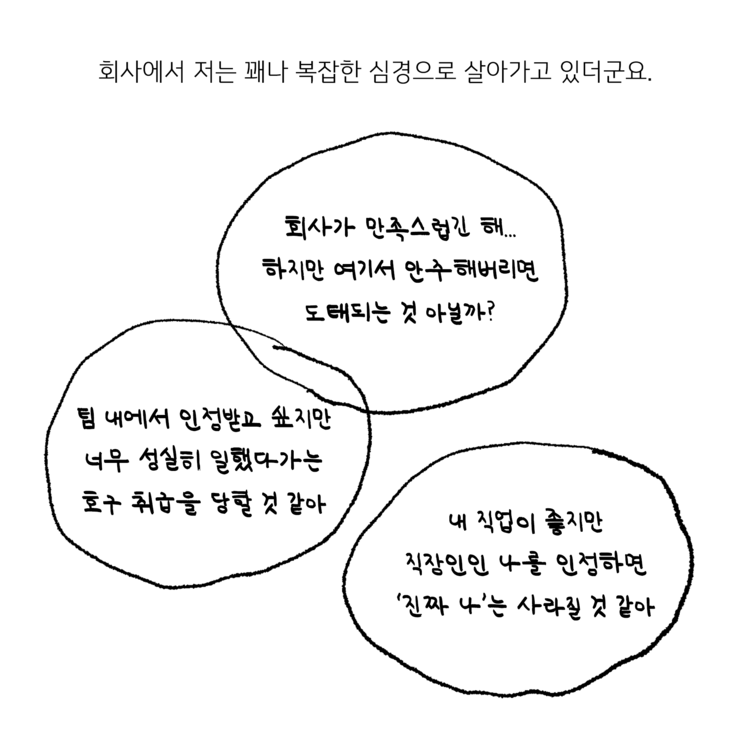 회사에서 저는 꽤나 복잡한 심경으로 살아가고 있더군요.
회사가 만족스럽긴 해...
하지만 여기서 안주해버리면
도태되는 것 아닐까?
팀 내에서 인정받고 싶지만
너무 성실히 일했다가는
호구 취급을 당할 것 같아
내 직업이 좋지만
직장인인 나를 인정하면
'진짜 나'는 사라질 것 같아